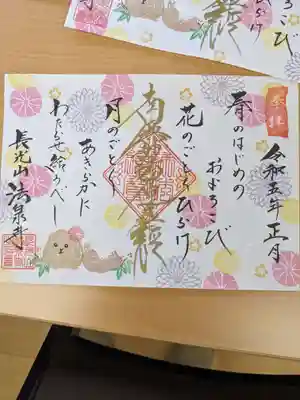 奉拝
令和五年正月
春のはじめの
およろこび
花のごとくひらけ
南無妙法蓮華経
月のごとく
あきらかに
わたらせ給うべし
長光山 法泉寺